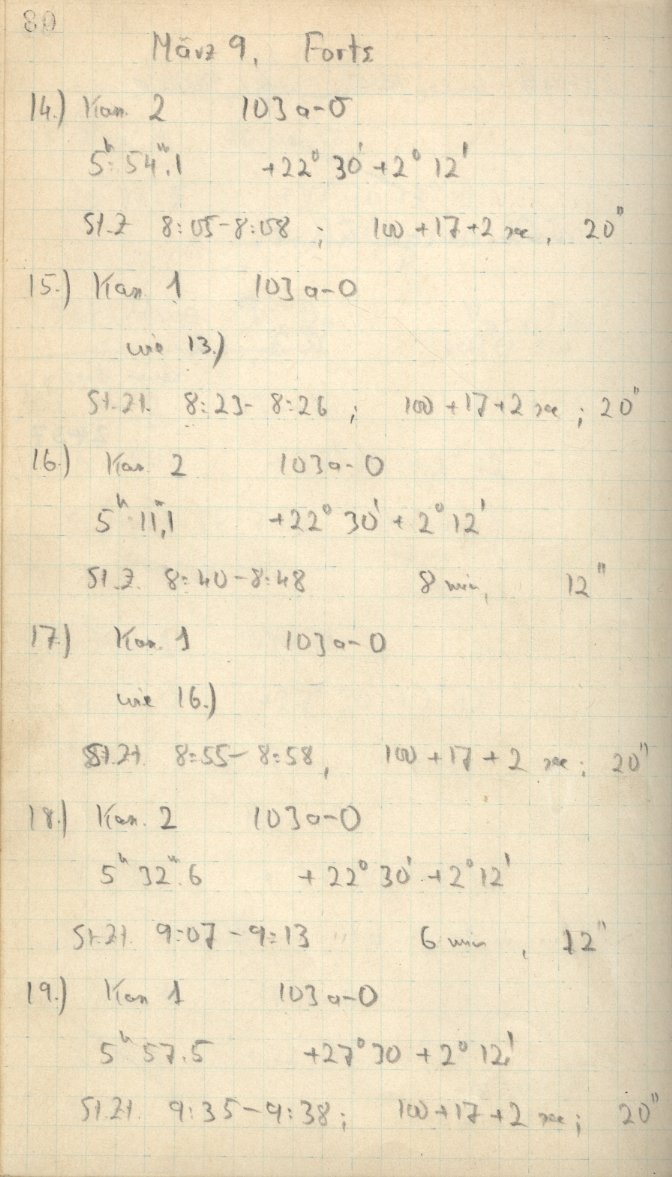 80
März 9, Forts
14.) Kam. 2 103a-O
5ʰ 54ᵐ.1 +22° 30' +2° 12'
St.Z 8:05-8:08 ; 100+17+2 sec, 20"
15.) Kam 1 103a-O
wie 13.)
St.Zt. 8:23-8:26 ; 100+17+2 sec ; 20"
16.) Kam. 2 103a-O
5ʰ 11ᵐ,1 +22° 30' + 2° 12'
St.Z. 8:40-8:48 8 min, 12"
17.) Kam. 1 103a-O
wie 16.)
St.Zt. 8:55-8:58, 100+17+2 sec; 20"
18.) Kam. 2 103a-O
5ʰ 32ᵐ.6 +22° 30' +2° 12'
St.Zt. 9:07-9:13 6 min , 12"
19.) Kam 1 103a-O
5ʰ 57.5 +27° 30 + 2° 12'
St.Zt. 9:35-9:38; 100+17+2 sec; 20"